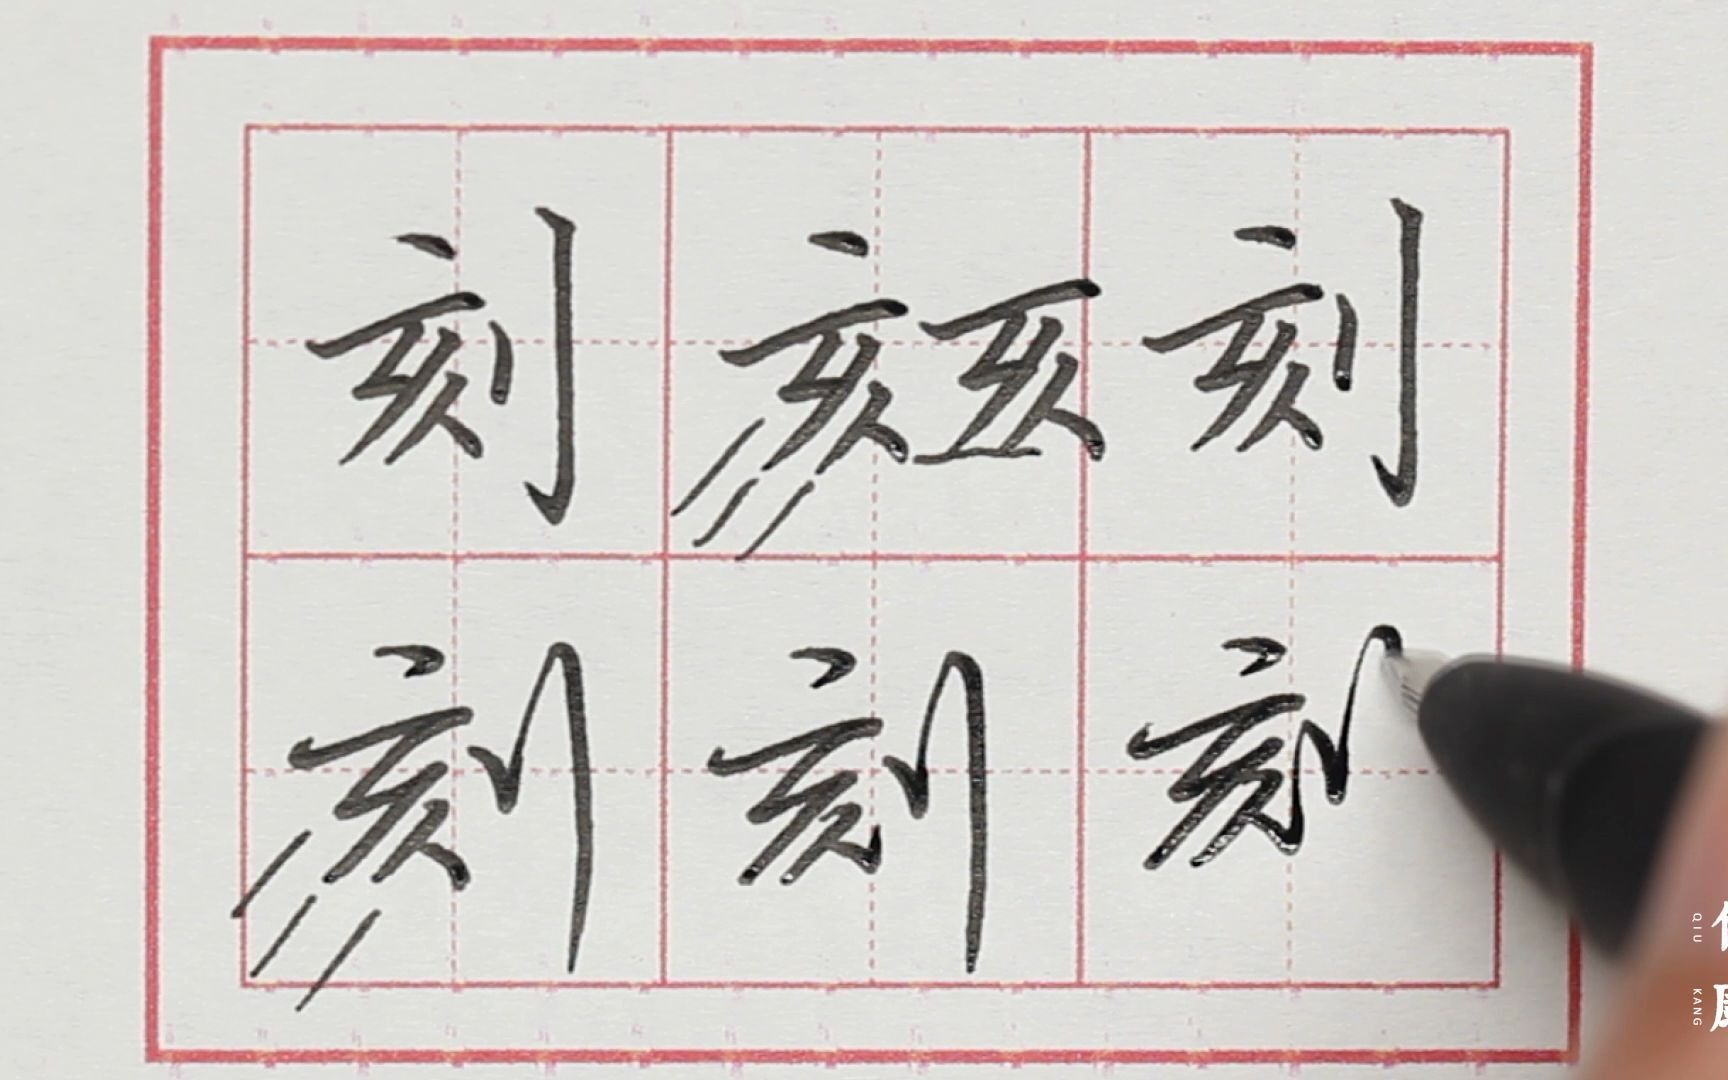 刻 亥 刻
刻 刻 刻
QIU
KANG